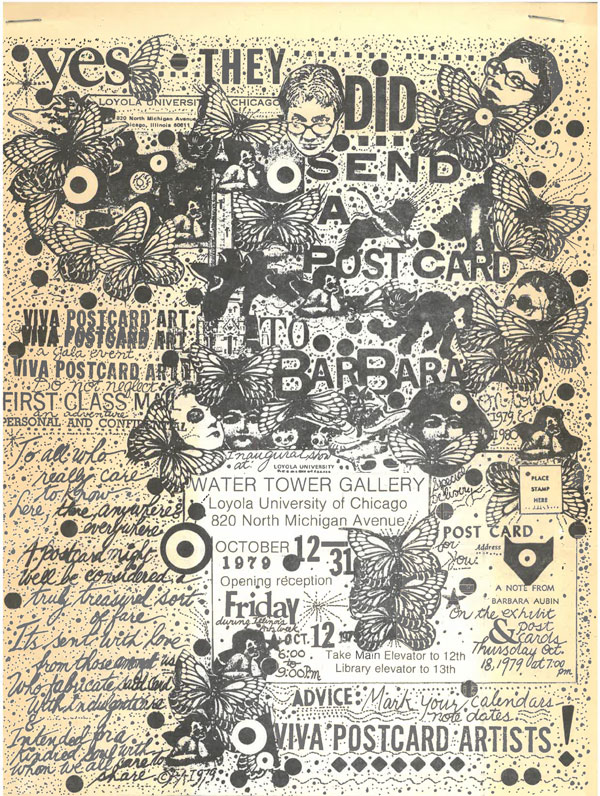 yes THEY
DiD
LOYOLA UNIVERSITY CHICAGO
820 North Michigan Avenue
Chicago, Illinois 60611
SEND
A
POSTCARD
TO
BARBARA
VIVA POSTCARD ART
VIVA POSTCARD ART
a gala event
VIVA POSTCARD ART
Do not neglect
FIRST CLASS MAIL
an adventure
PERSONAL AND CONFIDENTIAL
On tour
1979 &
1980
To all who
really care
to know
here there anywhere &
everywhere
A postcard might
well be considered a
truly treasured sort
of fare
It's sent with love
from those amongst us
who fabricate such art
with
&
Intended for a
Kindred one with
whom we all care to
share © BA 1979
Inaugural show
at LOYOLA UNIVERSITY
WATER TOWER GALLERY
Loyola University of Chicago
820 North Michigan Avenue
OCTOBER 12-
1979 31
Opening reception
Friday
during Illinois
OCT. 12 1979
6:00
to
9:00 pm
Take Main Elevator to 12th
Library elevator to 13th
Special
Delivery
PLACE
STAMP
HERE
POST CARD
for
you
Address
A NOTE FROM
BARBARA AUBIN
On the exhibit
& post
cards
Thursday Oct.
18, 1979 at 7:00
pm
ADVICE: Mark Your Calendars
note dates
VIVA POSTCARD ARTISTS!